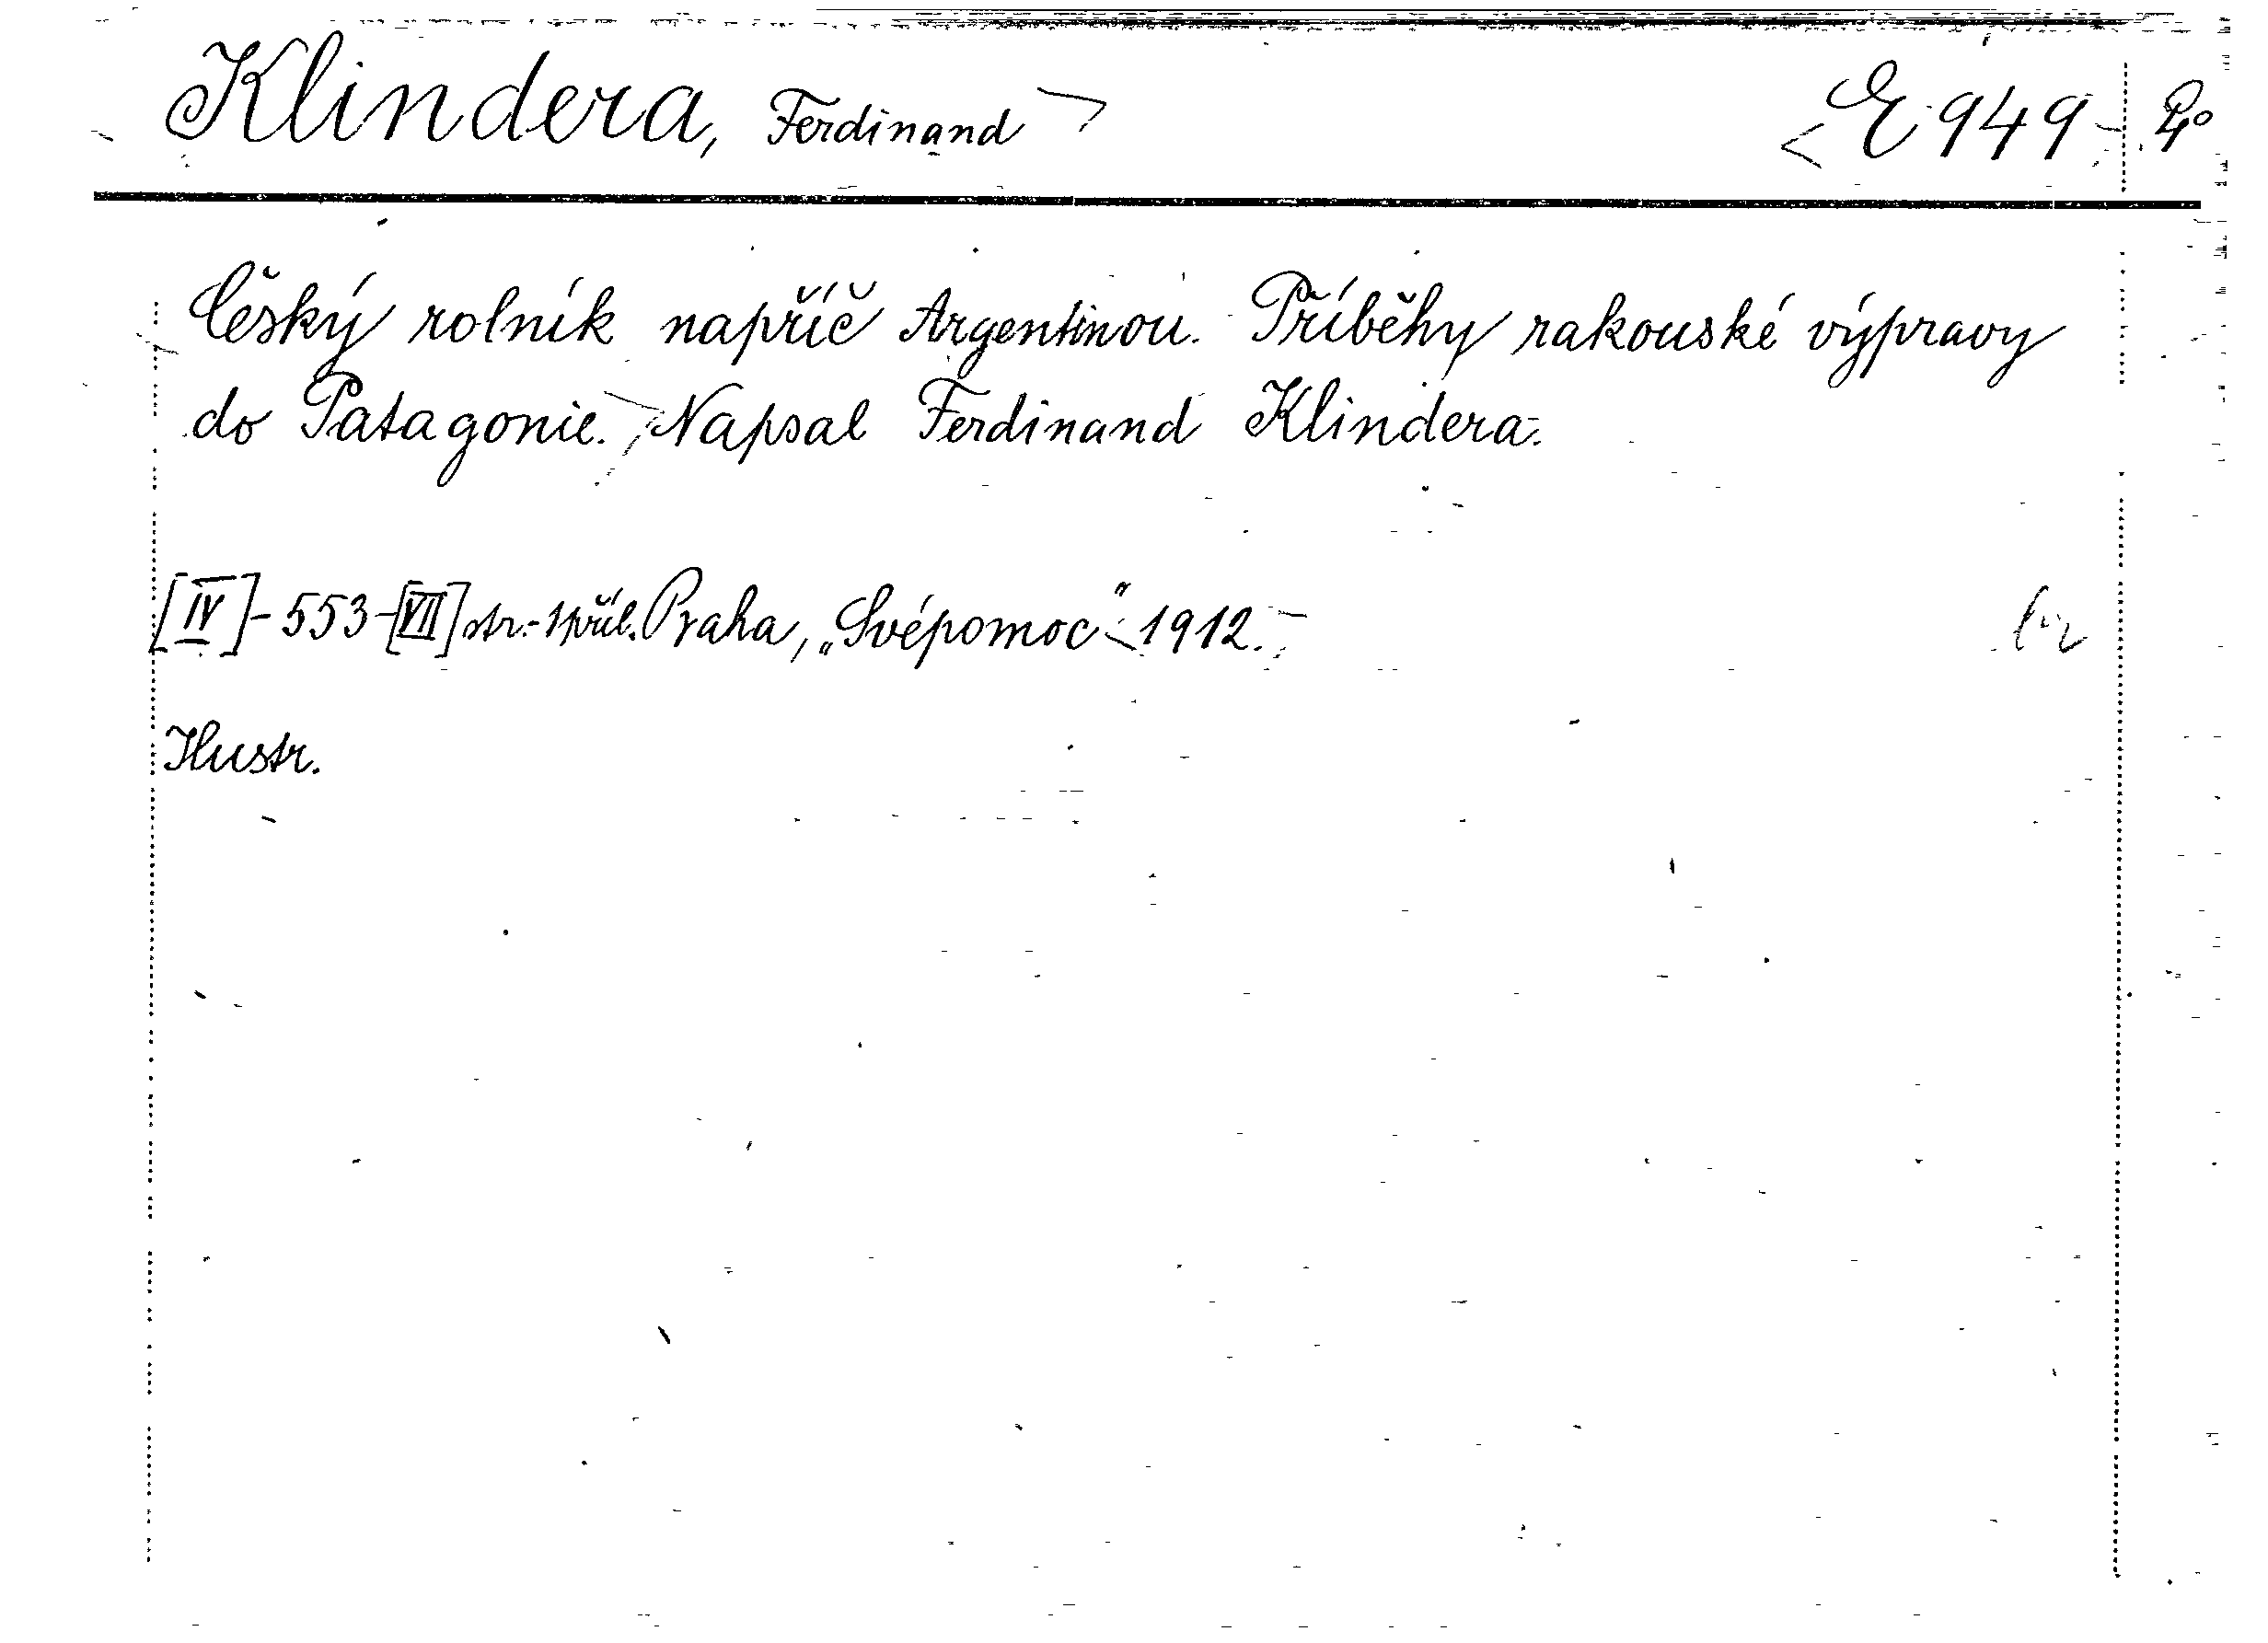 Klindera, Ferdinand E 949
Český rolník napříč Argentinou. Příběhy rakouské výpravy
do Patagonie. Napsal Ferdinand Klindera.
[IV]-553-[VII] str.-1 příl. Praha, „Svépomoc“ 1912.
Ilustr.